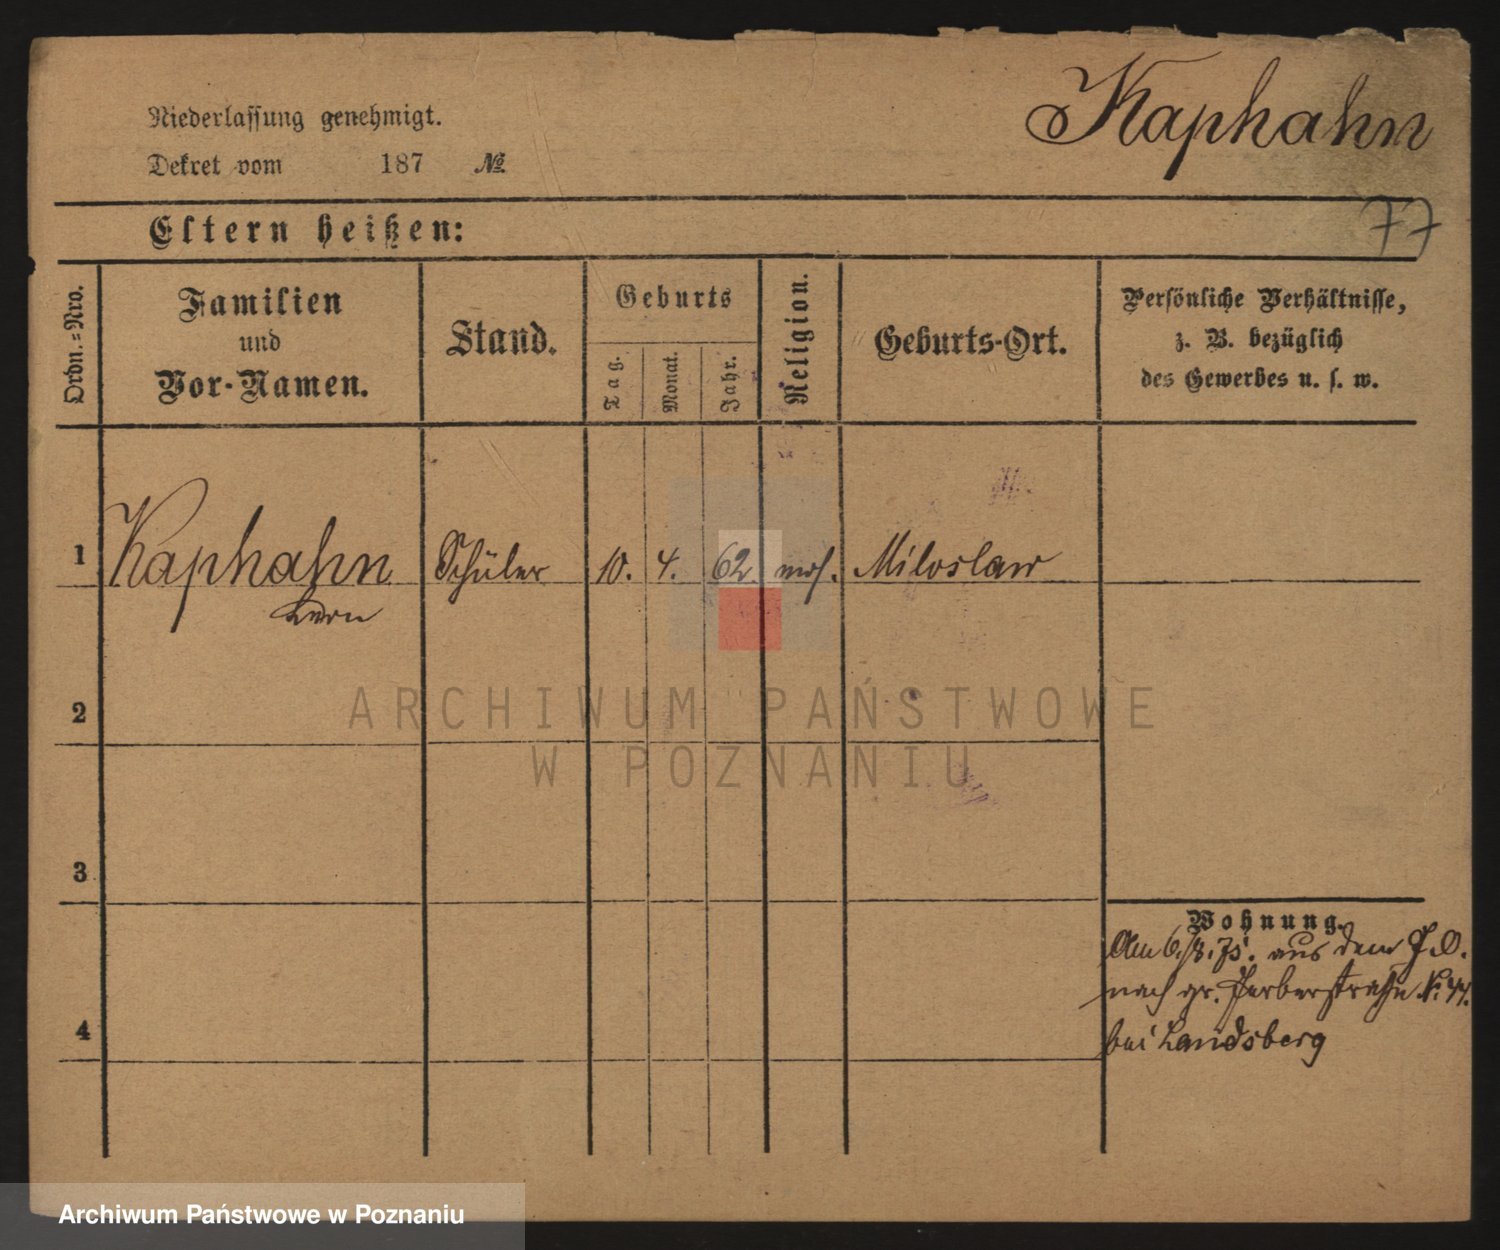 Kaphahn
Niederlassung genehmigt.
Dekret vom 187 №
77
Eltern heißen:
Ordn.=Nro.
Familien
und
Vor-Namen.
Stand.
Geburts
Tag.
Monat.
Jahr.
Religion.
Geburts-Ort.
Persönliche Verhältnisse,
z. B. bezüglich
des Gewerbes u. s. w.
1 Kaphahn Schüler 10. 4. 62. mos. Miloslaw
2
3
4
Wohnung.
Am 6./8.75. aus dem
nach gr. Gerberstraße N:
bei Landsberg
ARCHIWUM PAŃSTWOWE
W POZNANIU
Archiwum Państwowe w Poznaniu